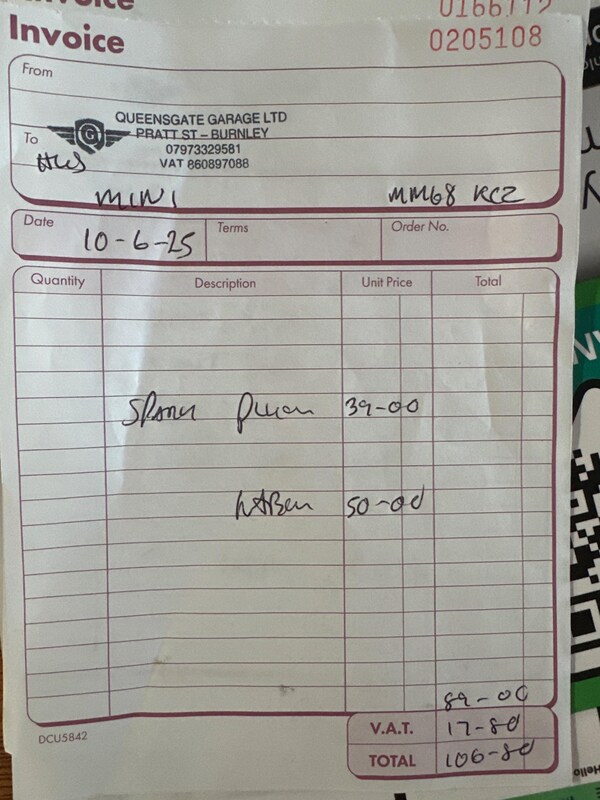 Invoice
0166112
Invoice
0205108
From
QUEENSGATE GARAGE LTD
PRATT ST – BURNLEY
07973329581
VAT 860897088
G
To
MINI
MM68 KCZ
Date
10-6-25
Terms
Order No.
Quantity Description Unit Price Total
39-00
50-00
89-00
V.A.T. 17-80
TOTAL 106-80
DCU5842
Hello